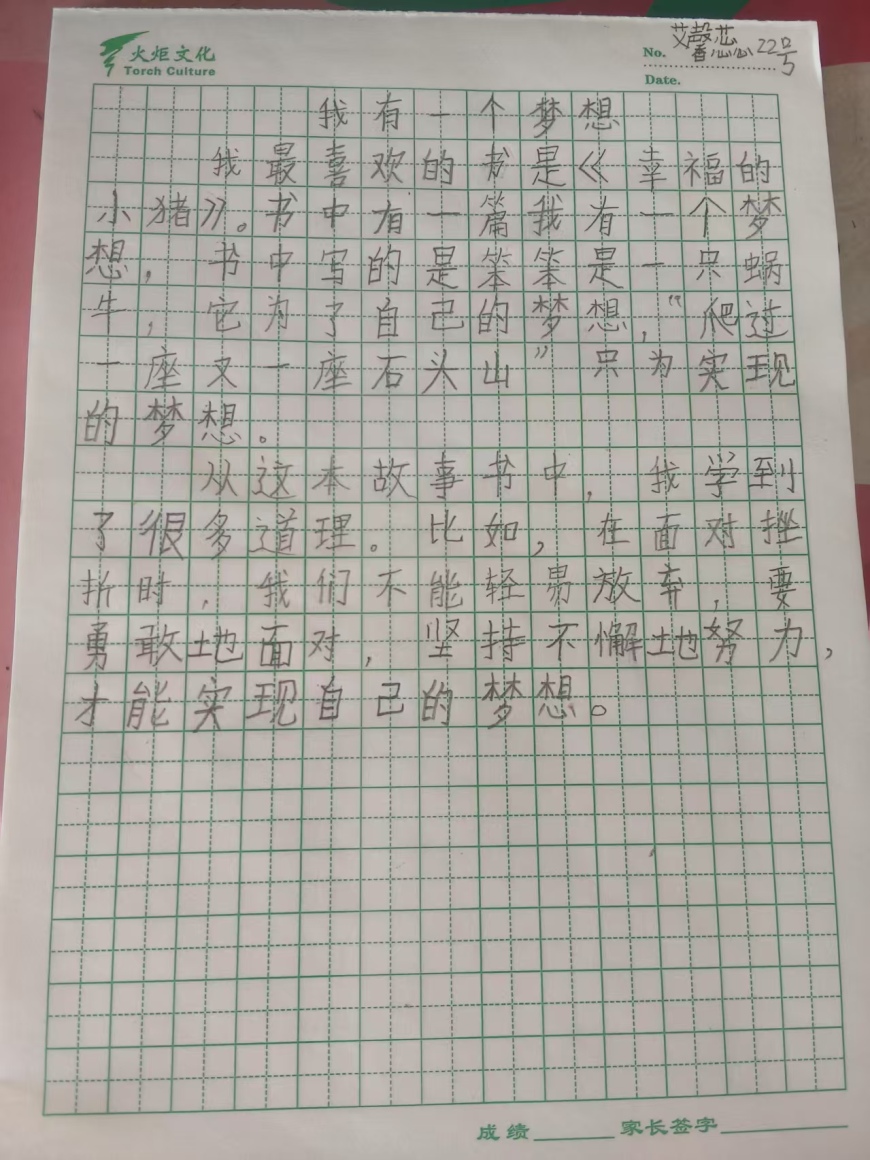 火炬文化
Torch Culture
No. 艾馨蕊 22号
Date.
我有一个梦想
我最喜欢的书是《幸福的
小猪》。书中有一篇我有一个梦
想，书中写的是笨笨是一只蜗
牛，它为了自己的梦想，“爬过
一座又一座石头山”只为实现
的梦想。
从这本故事书中，我学到
了很多道理。比如，在面对挫
折时，我们不能轻易放弃，要
勇敢地面对，坚持不懈地努力，
才能实现自己的梦想。
成绩 家长签字